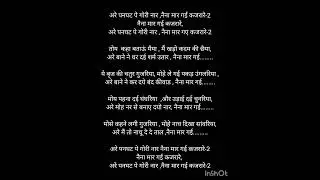 अरे पनघट पे गोरी नार ,नैना मार गई कजरारे-2
नैना मार गई कजरारे,
अरे पनघट पे गोरी नार , नैना मार गए कजरारे-2
तोय कहा बताऊं मैया , मैं खड़ो कदम की छैया,
अरे बाने ने धर दई शर्म उतार , नैना मार गई.........
ये बृज की चतुर गुजरिया, मोहे ले गई पकड़ उंगलरिया ,
अरे बाने ने कर दये बंद कीवाड़ , नैना मार गई.........
मोय पहना दई घंघरिया ,और उड़ाई दई चुनरिया,
अरे मोह नर से बनाए दयो नार, नैना मार गई.........
मोसे कहने लगी गुजरिया , मोहे नाच दिखा सांवरिया,
अरे मैं तो नाचू दे दे ताल , नैना मार गई.........
अरे पनघट पे गोरी नार नैना मार गई कजरारे-2
नैना मार गई कजरारे,
अरे पनघट पे गोरी नार ,नैना मार गई कजरारे-2
InShOt